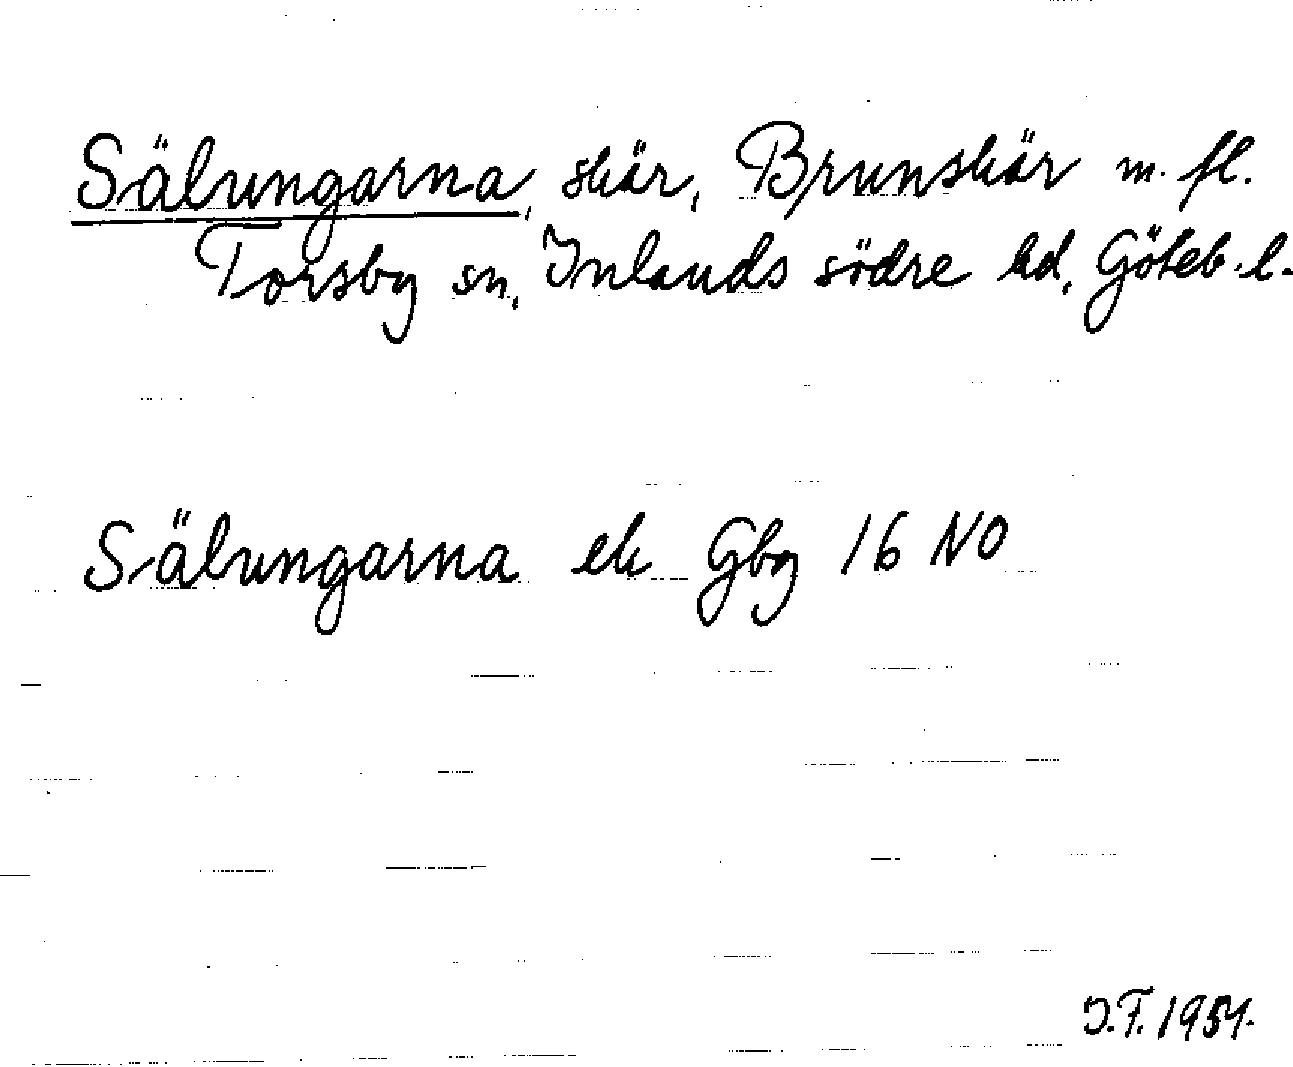 Sälungarna, skär, Brunskär m. fl.
Torsby sn, Inlands södre hd, Göteb. l.
Sälungarna ek Gbg 16 NO
J.F. 1954.